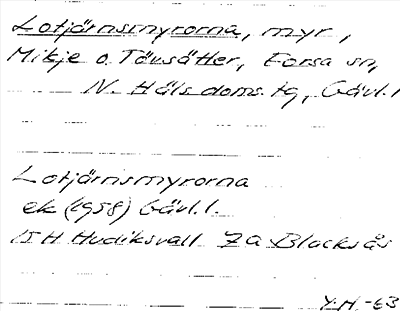 Lotjärnsmyrorna, myr,
Mitje o. Tövsätter, Forsa sn,
N. Häls. doms. tg, Gävl. l
Lotjärnsmyrorna
ek (1958) Gävl. l.
15 H Hudiksvall 7a Blacksås
Y.H.-63